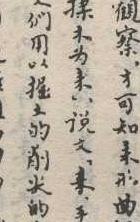 觀察，方可知耒形曲
揉木为耒。"说文："耒，手
人們用以掘土的削尖的